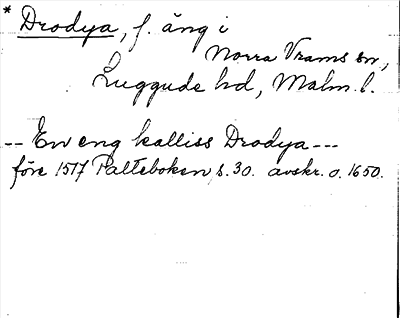 * Drodya, f. äng i
Norra Vrams sn,
Luggude hd, Malm. l.
-- En eng kalliss Drodya ---
före 1517 Palteboken, s. 30. avskr. o. 1650.